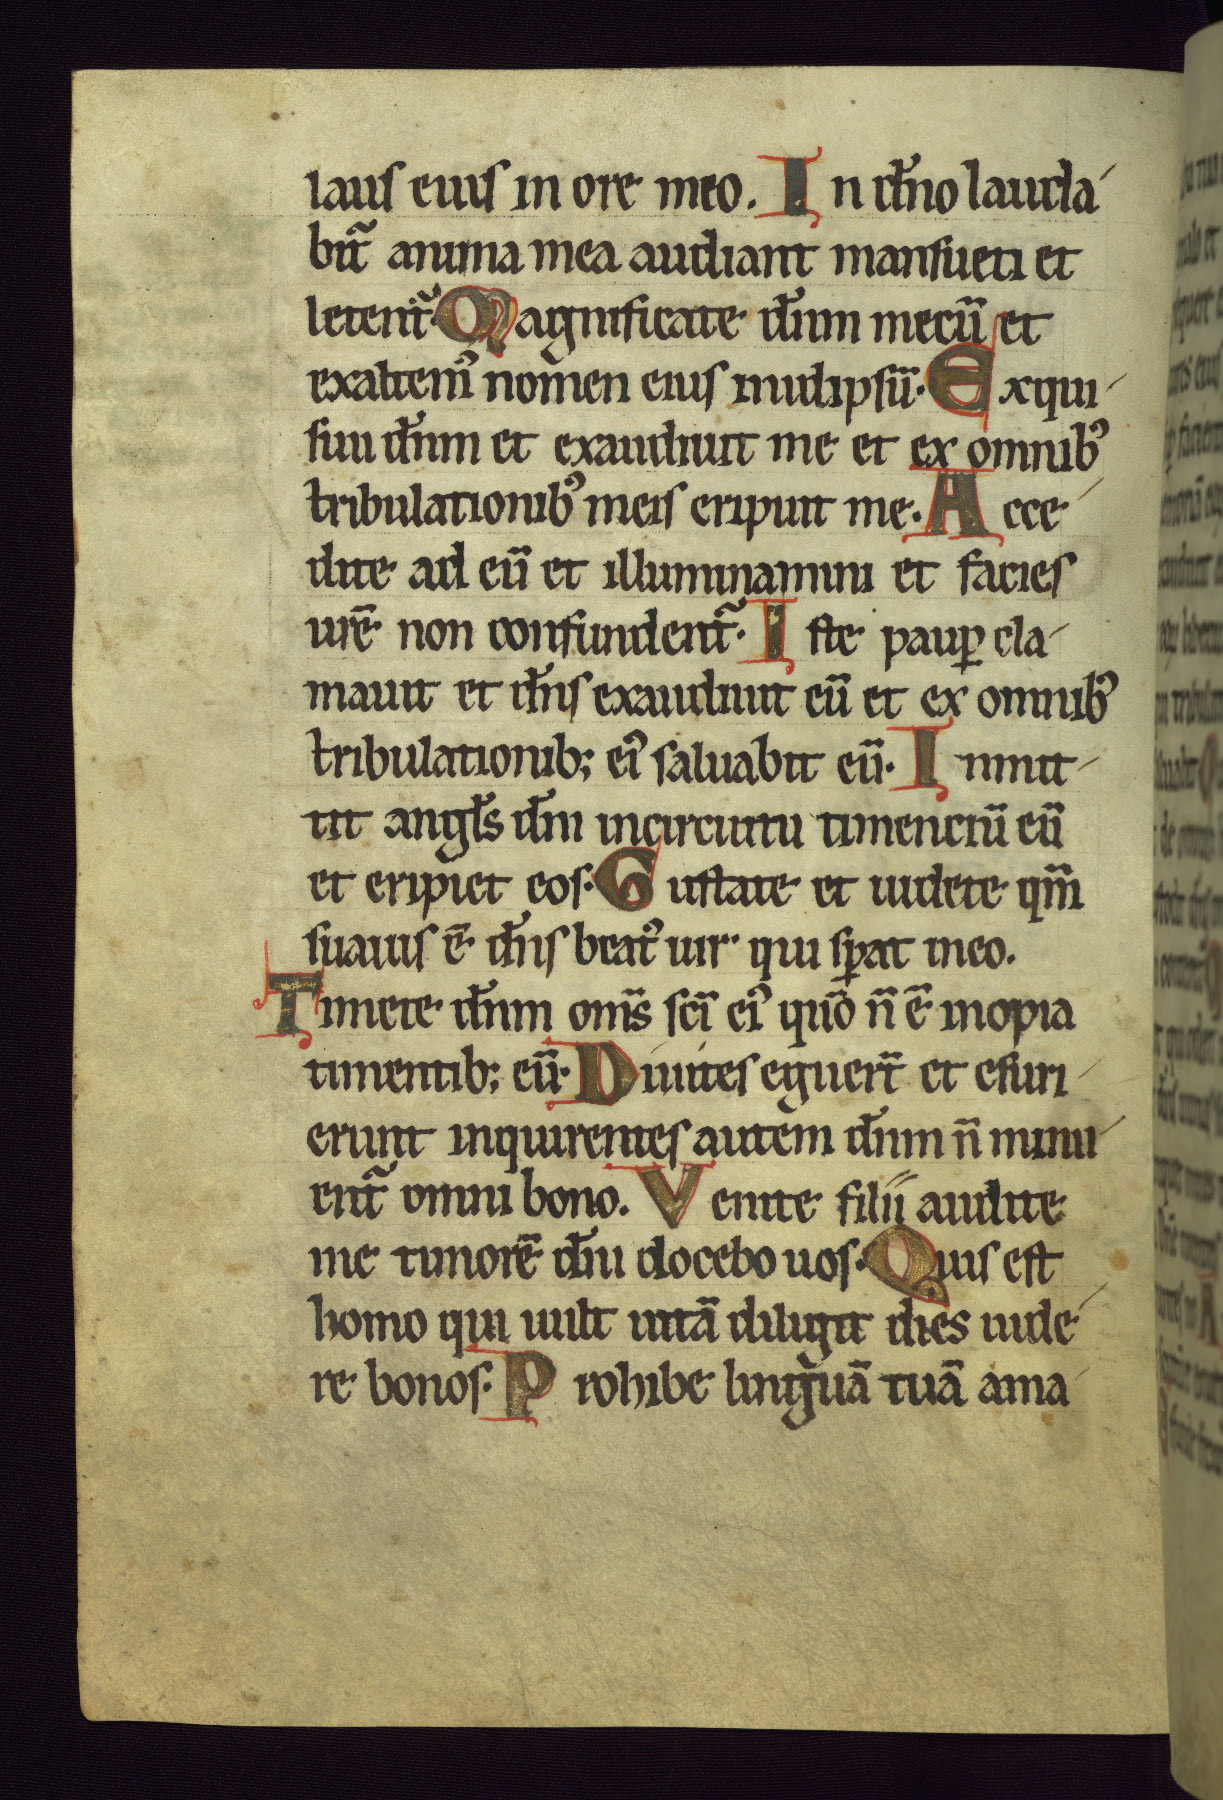 laus eius in ore meo. In dn̄o lauda
bit̃ anima mea audiant mansueti et
letent̃. Magnificate dn̄m mecū et
exaltemꝰ nomen eius inidipsū. Exqui
siui dn̄m et exaudiuit me et ex omnibꝰ
tribulationibꝰ meis eripuit me. Acce
dite ad eū et illuminamini et facies
ur̄e non confundent̃. Iste paup̱ cla
mauit et dn̄s exaudiuit eū et ex omnibꝰ
tribulationib; eiꝰ saluabit eū. Inmit
tit angl̄s dn̄i incircuitu timenciū eū
et eripiet eos. Gustate et uidete qm̄
suauis ē dn̄s beatꝰ uir qui sp̱at ineo.
Timete dn̄m om̄s sc̄i eiꝰ qūo n̄ ē inopia
timentib; eū. Diuites eguer̄t et esuri
erunt inquirentes autem dn̄m n̄ minu
ent̃ omni bono. Venite filii audite
me timorē dn̄i docebo uos. Quis est
homo qui uult uitā diligit dies uide
re bonos. Prohibe linguā tuā ama